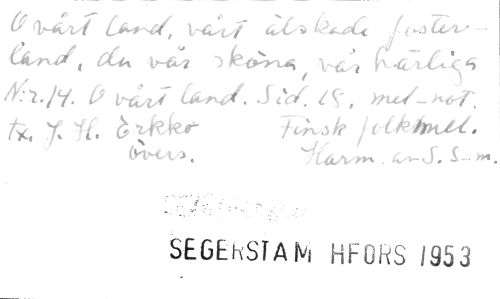 O vårt land, vårt älskade foster-
land, du vår sköna, vår härliga
N:r 14. O vårt land. Sid. 18, med not.
Tx. J. H. Erkko Finsk folkmel.
övers. Harm. av S. S-m.
SEGERSTAM HFORS 1953